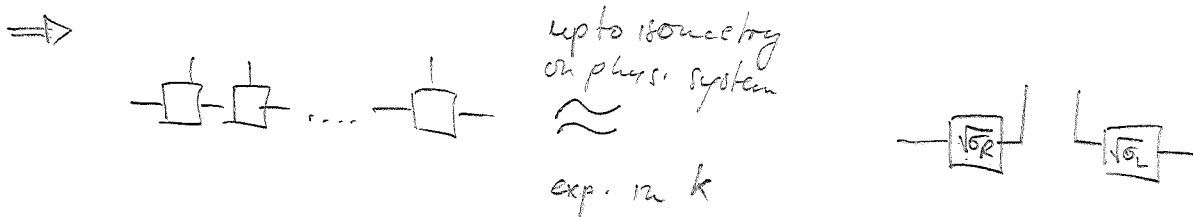 ⇒
up to isometry
on phys. system
≈
exp. in k
.... 
√σ_R
√σ_L